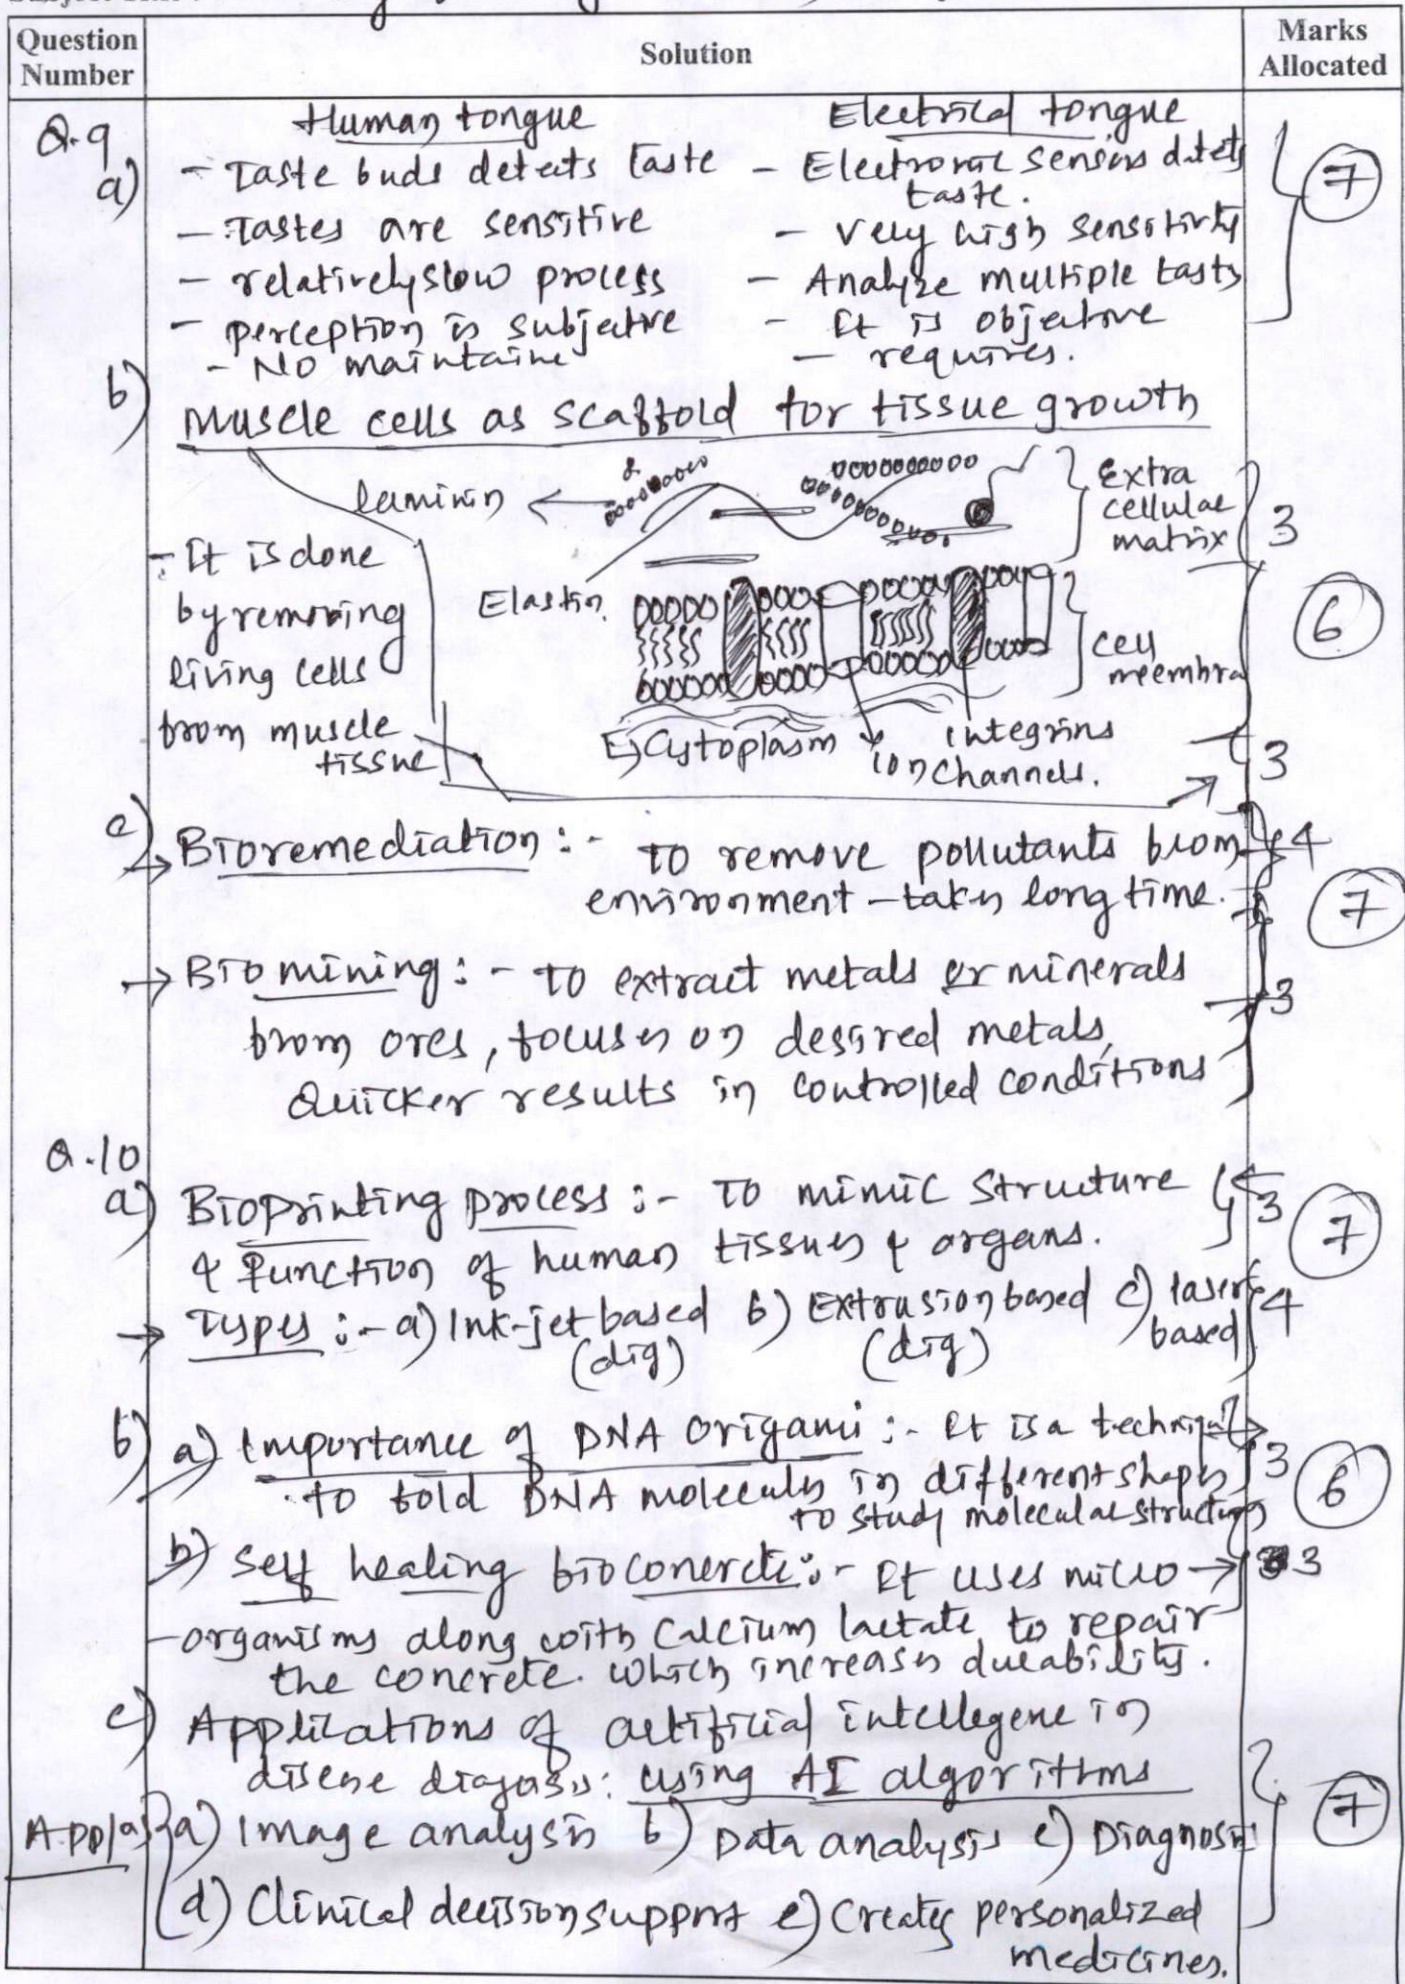 Question Number
Solution
Marks Allocated
Q.9
a)
Human tongue
Electrical tongue
- Taste buds detects taste - Electronic sensors detets
taste.
- Tastes are sensitive - Very high sensitivity
- relatively slow process - Analyze multiple tasts
- perception is subjective - It is objective
- No maintaine - requires.
7
b)
Muscle cells as scaffold for tissue growth
laminin
Extra
cellular
matrix
3
- It is done
by removing
living cells
from muscle
tissue
Elastin
cell
meembra
6
Cytoplasm
integrins
ion channels.
3
c)
→ Bioremediation :- To remove pollutants from
environment - takes long time.
4
7
→ Bio mining :- To extract metals or minerals
from ores, focuses on desired metals,
Quicker results in controlled conditions
3
Q.10
a) Bioprinting process :- To mimic structure
& function of human tissues & organs.
3
7
→ Types :- a) Ink-jet based b) Extrusion based c) laser
based
(dig) (dig)
4
b) a) Importance of DNA origami :- It is a techniqu
to fold DNA molecules in different shapes
to study molecular structures
3
6
b) Self healing bioconcrete :- It uses micro
-organisms along with Calcium lactate to repair
the concrete. which increases durability.
3
c) Applications of artificial intellegene in
disease diagosis: using AI algorithms
Applas a) Image analysis b) Data analysis c) Diagnosis
d) Clinical decision support e) Creates personalized
medicines.
7